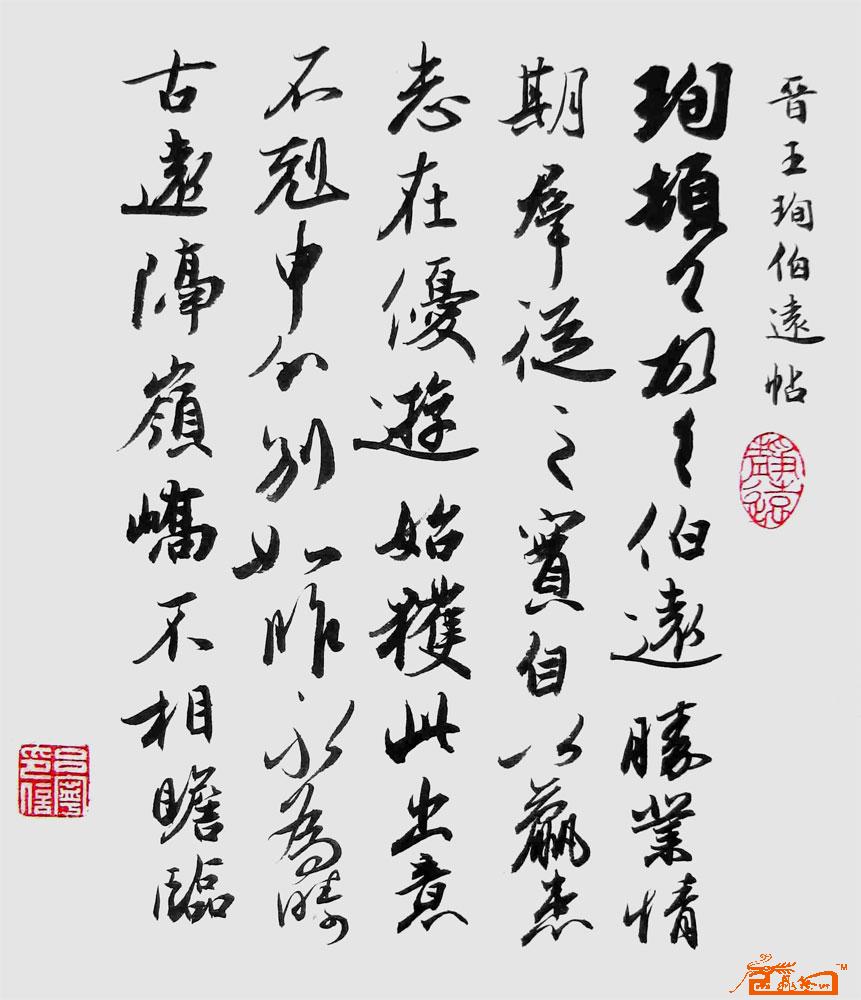 晉王珣伯遠帖
靜遠
珣頓首頓首伯遠勝業情
期羣從之寶自以羸患
志在優遊始獲此出意
不剋申分別如昨永為疇
古遠隔嶺嶠不相瞻臨